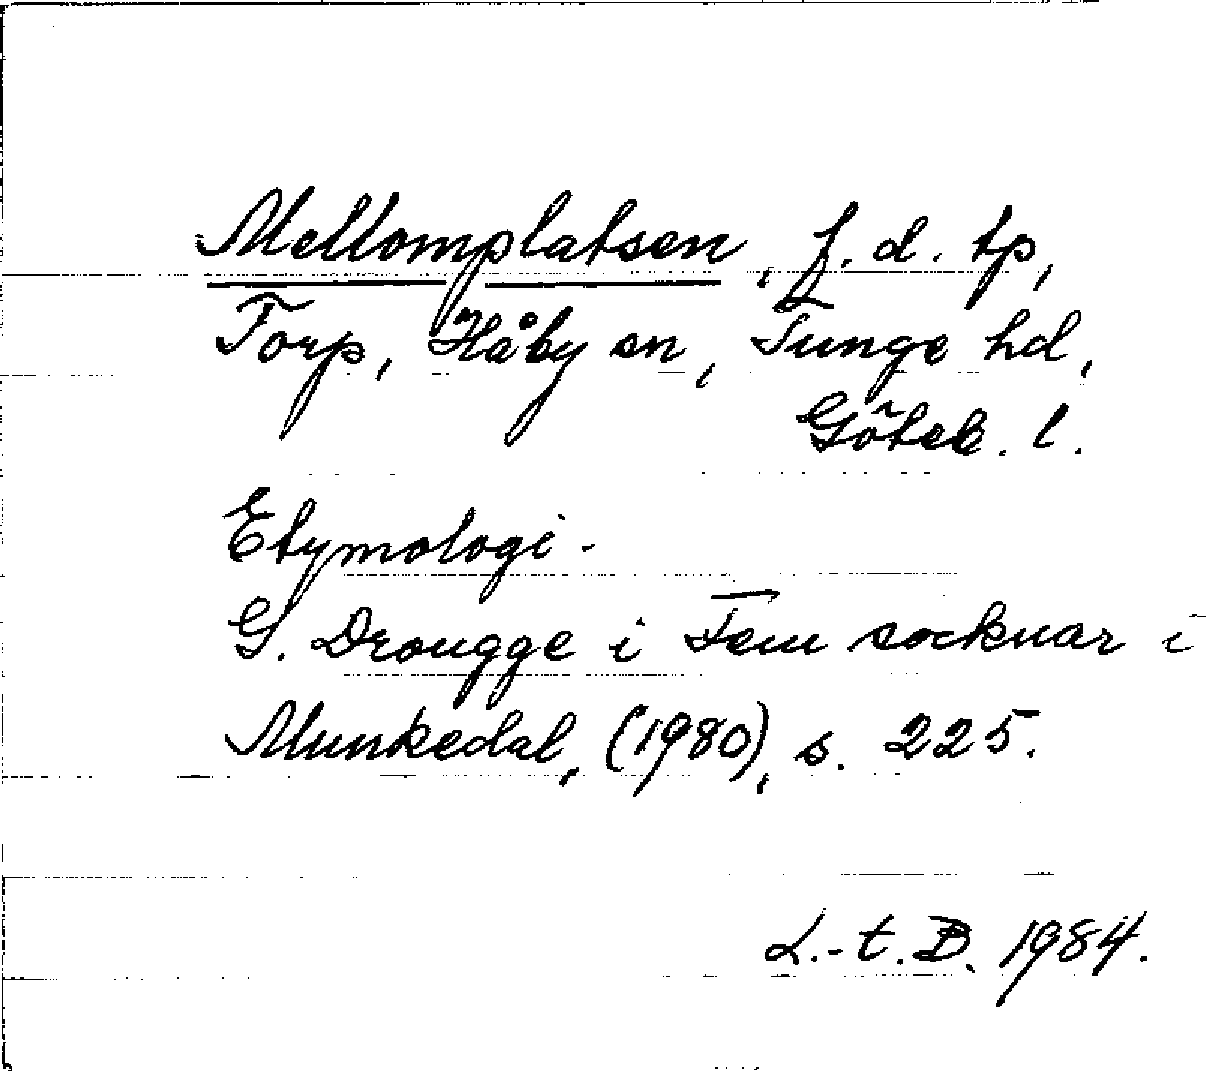 Mellomplatsen, f. d. tp,
Torp, Håby sn, Tunge hd,
Göteb. l.
Etymologi.
G. Drougge i Fem socknar i
Munkedal, (1980), s. 225.
L.-t. B. 1984.